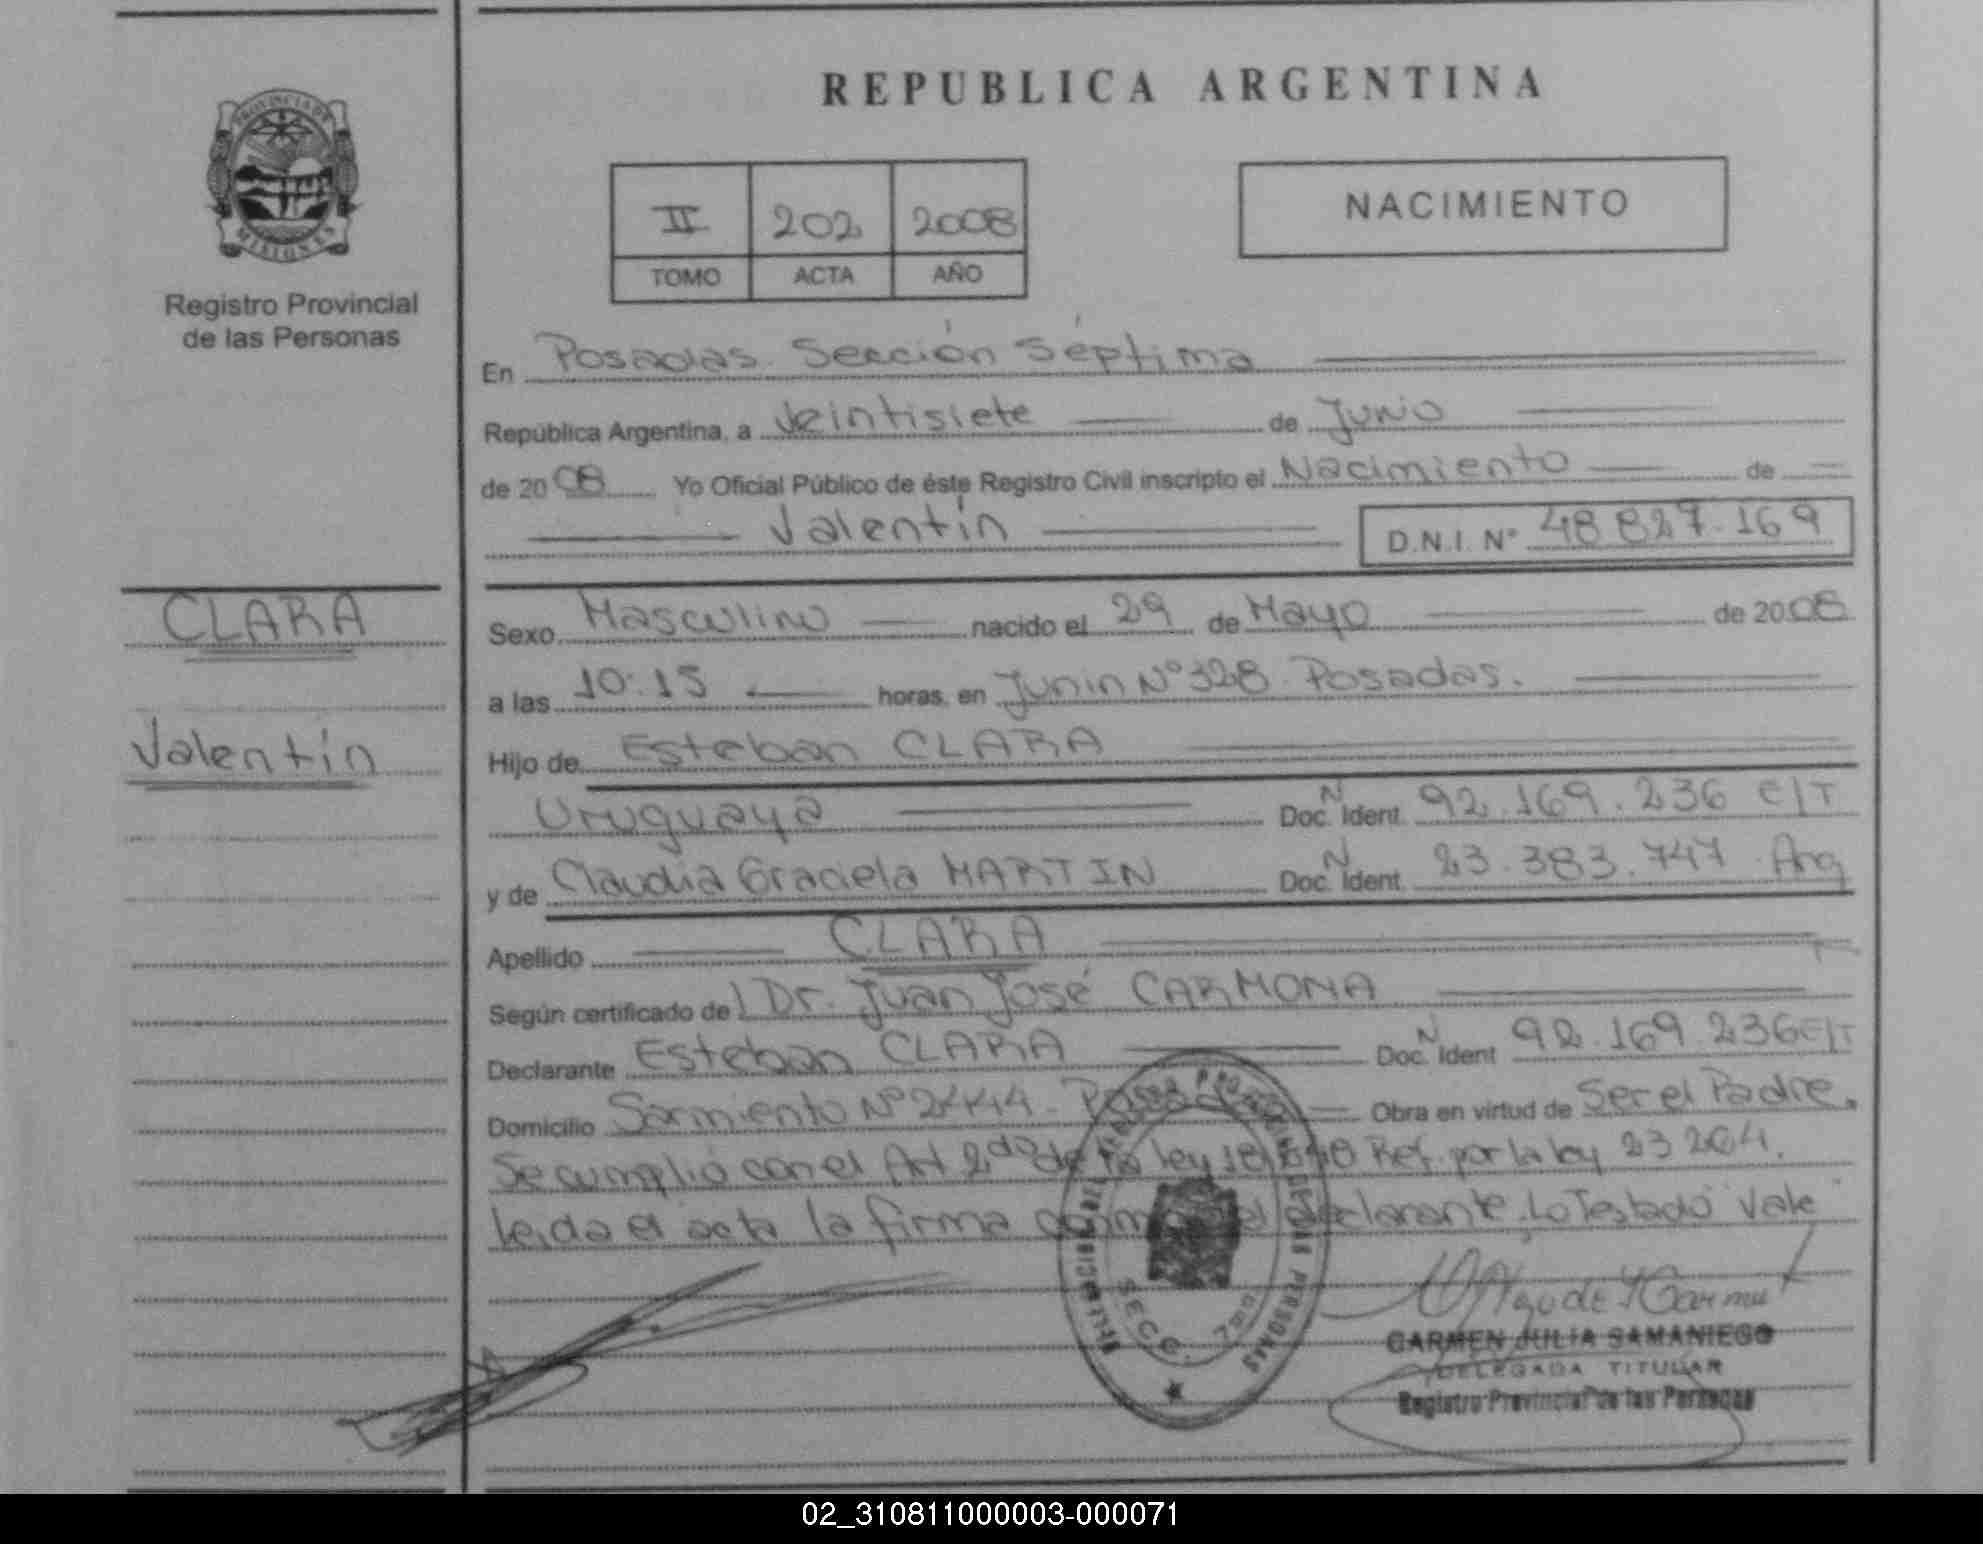 REPUBLICA ARGENTINA
PROVINCIA DE
MISIONES
Registro Provincial
de las Personas
II 202 2008
TOMO ACTA AÑO
NACIMIENTO
En Posadas. Sección Séptima
República Argentina, a Veintisiete de Junio
de 20 08 Yo Oficial Público de éste Registro Civil inscripto el Nacimiento de
Valentín D.N.I. Nº 48 827.169
CLARA
Valentín
Sexo Masculino nacido el 29 de Mayo de 2008
a las 10:15 horas, en Junin Nº 328 Posadas.
Hijo de Esteban CLARA
Uruguaya Doc. Ident. N 92.169.236 E/T
y de Claudia Graciela MARTIN Doc. Ident. N 23.383.747 Arg
Apellido CLARA
Según certificado de l Dr. Juan José CARMONA
Declarante Esteban CLARA Doc. Ident N 92.169.236 E/T
Domicilio Sarmiento Nº Obra en virtud de Ser el Padre.
Se cumplió con el Art 2do de la ley Ref. por la ley 23 264.
Leída el acta la firma el declarante. Lo Testado "Vale"
SECC. 7ma
CARMEN JULIA SAMANIEGO
DELEGADA TITULAR
Registro Provincial de las Personas
02_310811000003-000071